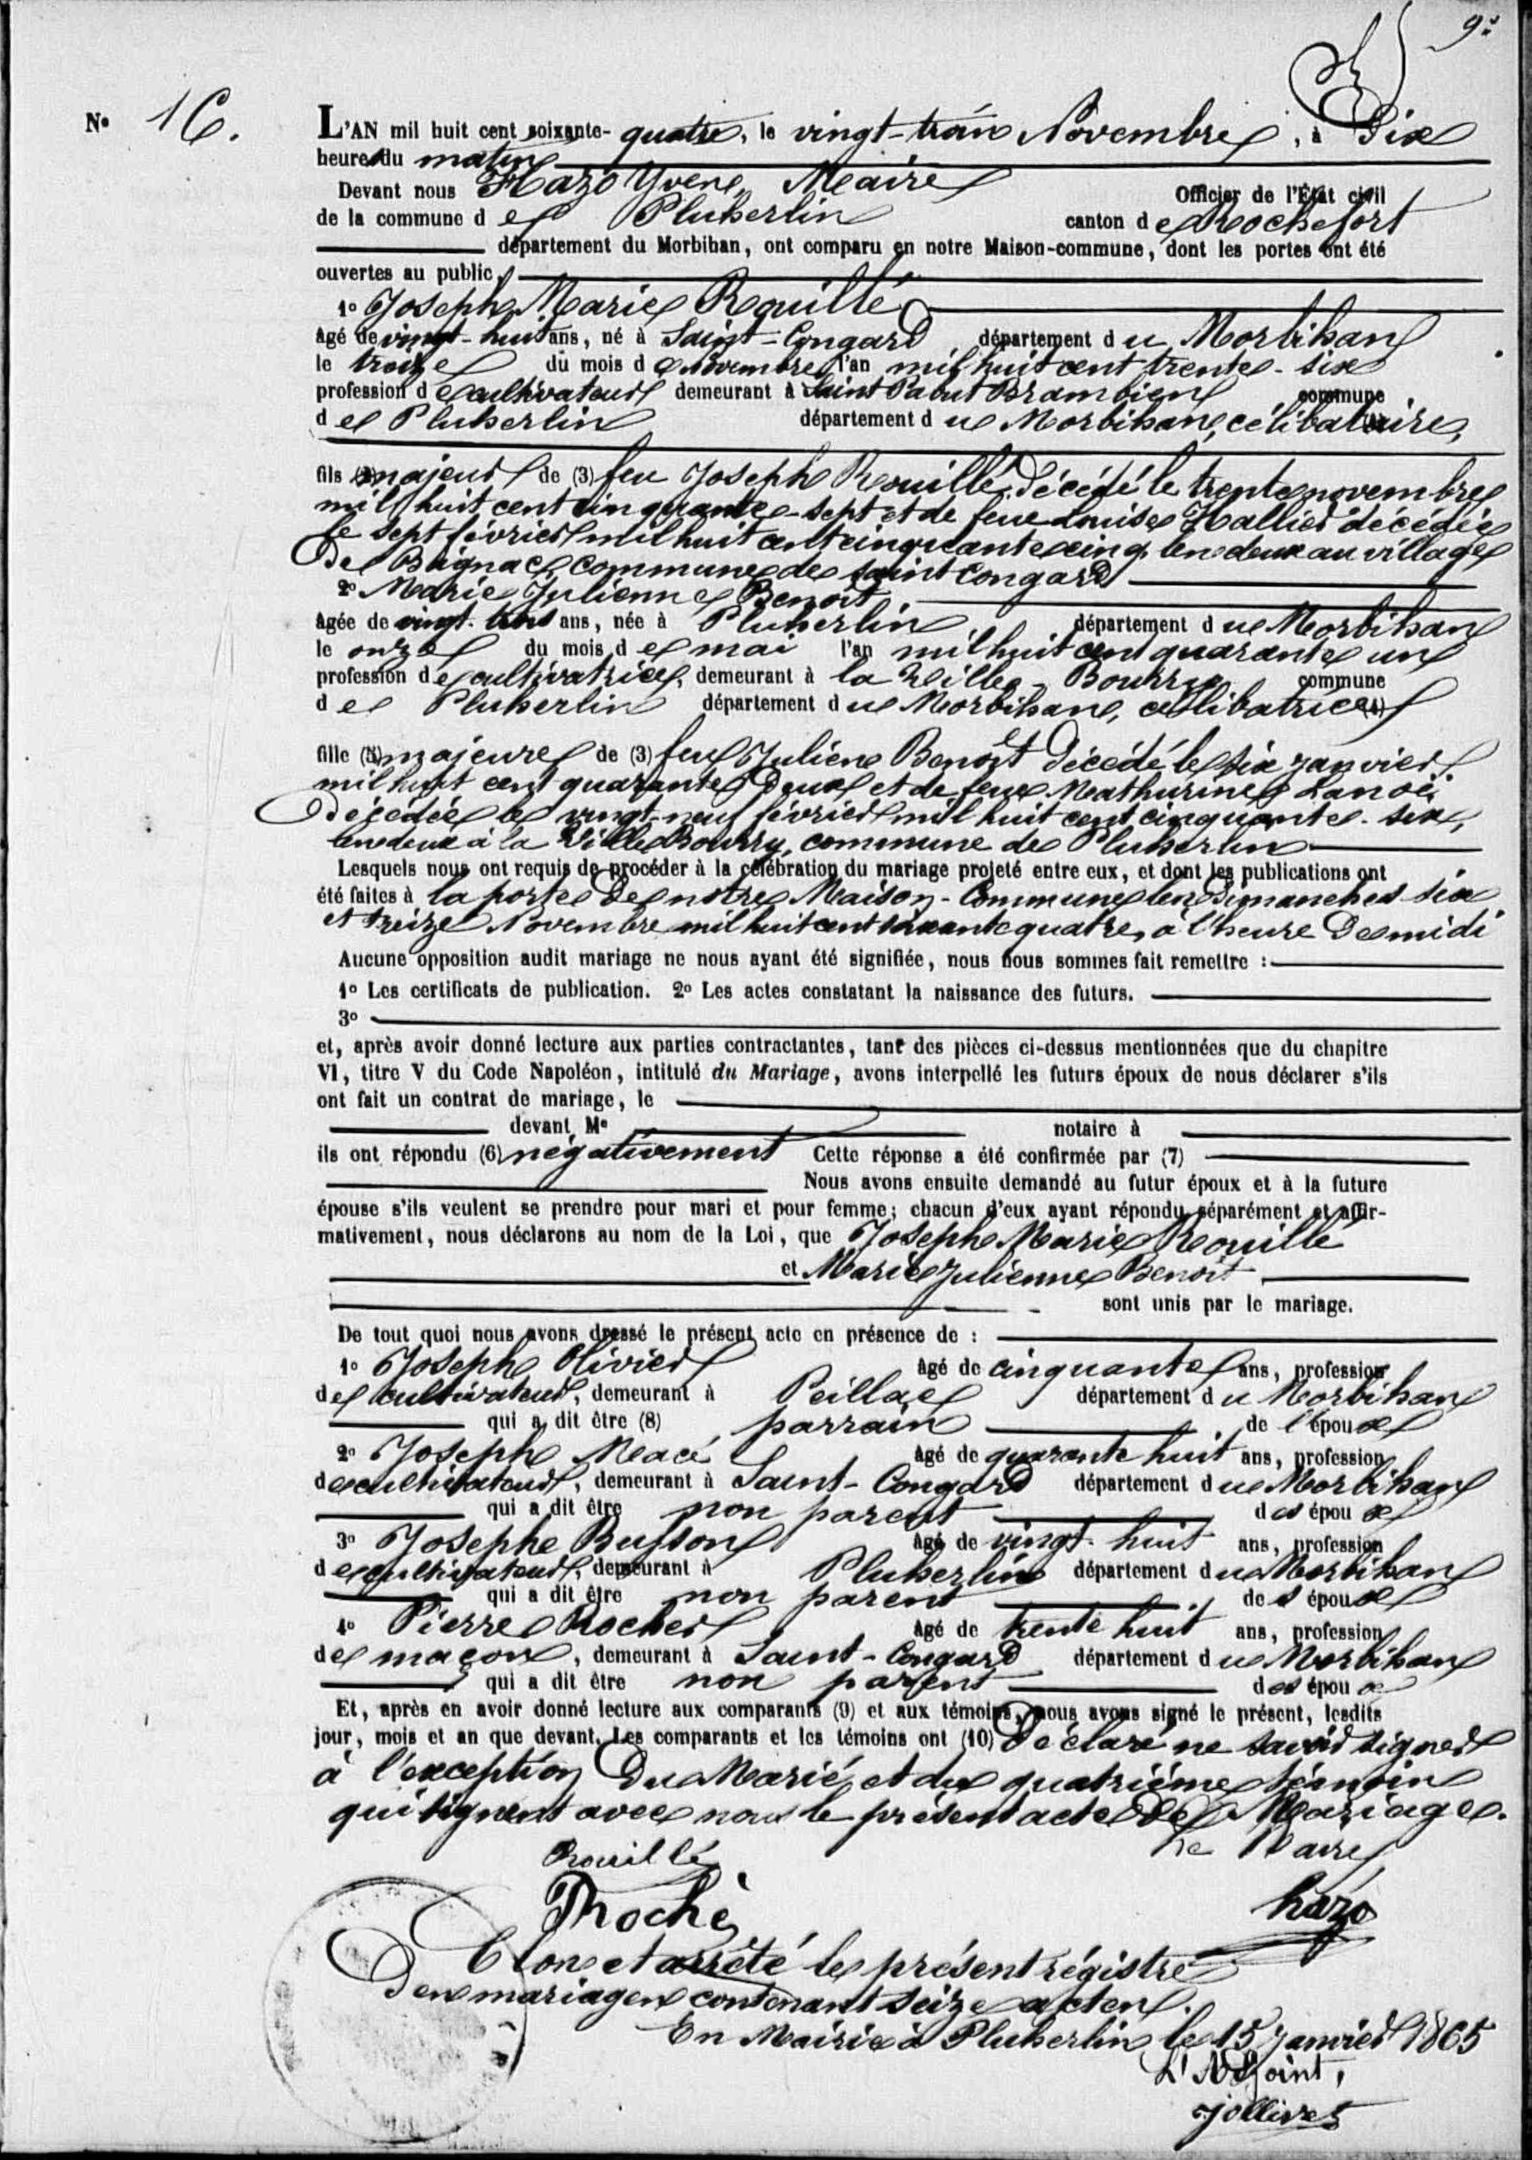 9e
No 16.
L'AN mil huit cent soixante-quatre, le vingt-trois Novembre, à Dix
heures du matin
Devant nous Hazo Yves, Maire Officier de l'État civil
de la commune de Pluherlin canton de Rochefort
département du Morbihan, ont comparu en notre Maison-commune, dont les portes ont été
ouvertes au public,
1o Joseph Marie Rouillé
âgé de vingt-huit ans, né à Saint-Congard département du Morbihan
le treize du mois de Novembre l'an mil huit cent trente-six
profession de cultivateur demeurant à Saint Pabut Brambien commune
de Pluherlin département du Morbihan, célibataire,
fils majeur de (3) feu Joseph Rouillé, décédé le trente novembre
mil huit cent cinquante-sept et de feue Louise Hallier décédée
le sept février mil huit cent cinquante cinq, les deux au village
De Bignac commune de saint Congard
2o Marie Julienne Benoît
âgée de vingt-trois ans, née à Pluherlin département du Morbihan
le onze du mois de mai l'an mil huit cent quarante un
profession de cultivatrice, demeurant à la Ville-Bourry commune
de Pluherlin département du Morbihan, célibatrice (4)
fille (5) majeure de (3) feu Julien Benoît Décédé le six janvier
mil huit cent quarante Deux et de feue Mathurine Lanoë
Décédée le vingt-neuf février mil huit cent cinquante-six,
les deux à la Ville Bourry, commune de Pluherlin
Lesquels nous ont requis de procéder à la célébration du mariage projeté entre eux, et dont les publications ont
été faites à la porte De notre Maison-Commune les Dimanches six
et treize Novembre mil huit cent soixante quatre, à l'heure De midi
Aucune opposition audit mariage ne nous ayant été signifiée, nous nous sommes fait remettre :
1o Les certificats de publication. 2o Les actes constatant la naissance des futurs.
3o
et, après avoir donné lecture aux parties contractantes, tant des pièces ci-dessus mentionnées que du chapitre
VI, titre V du Code Napoléon, intitulé du Mariage, avons interpellé les futurs époux de nous déclarer s'ils
ont fait un contrat de mariage, le
devant Me notaire à
ils ont répondu (6) négativement Cette réponse a été confirmée par (7)
Nous avons ensuite demandé au futur époux et à la future
épouse s'ils veulent se prendre pour mari et pour femme; chacun d'eux ayant répondu séparément et affir-
mativement, nous déclarons au nom de la Loi, que Joseph Marie Rouillé
et Marie Julienne Benoît
sont unis par le mariage.
De tout quoi nous avons dressé le présent acte en présence de :
1o Joseph Olivier âgé de cinquante ans, profession
de cultivateur, demeurant à Peillac département du Morbihan
qui a dit être (8) parrain de l'époux
2o Joseph Macé âgé de quarante huit ans, profession
de cultivateur, demeurant à Saint-Congard département du Morbihan
qui a dit être non parent des époux
3o Josephe Busson âgé de vingt-huit ans, profession
de cultivateur, demeurant à Pluherlin département du Morbihan
qui a dit être non parent des époux
4o Pierre Rocher âgé de trente huit ans, profession
de maçon, demeurant à Saint-Congard département du Morbihan
qui a dit être non parent des époux
Et, après en avoir donné lecture aux comparants (9) et aux témoins, nous avons signé le présent, lesdits
jour, mois et an que devant. Les comparants et les témoins ont (10) Déclaré ne savoir signer
à l'exception Du Marié et du quatrième témoin
qui signent avec nous le présent acte De Mariage.
Le Maire
Rouillé
Rochè hazo
Clos et arrêté le présent régistre
Des mariages contenant seize actes.
En Mairie à Pluherlin le 15 janvier 1865
L'Adjoint,
Jollivet